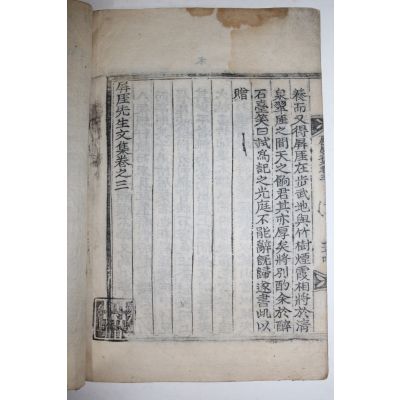 養而又得屛厓在步武地與竹樹煙霞相將於淸
泉翠崖之間天之餉君其亦厚矣將別酌余於醉
石臺笑曰試爲記之光庭不能辭旣歸遂書此以
贈
屛厓先生文集卷之三